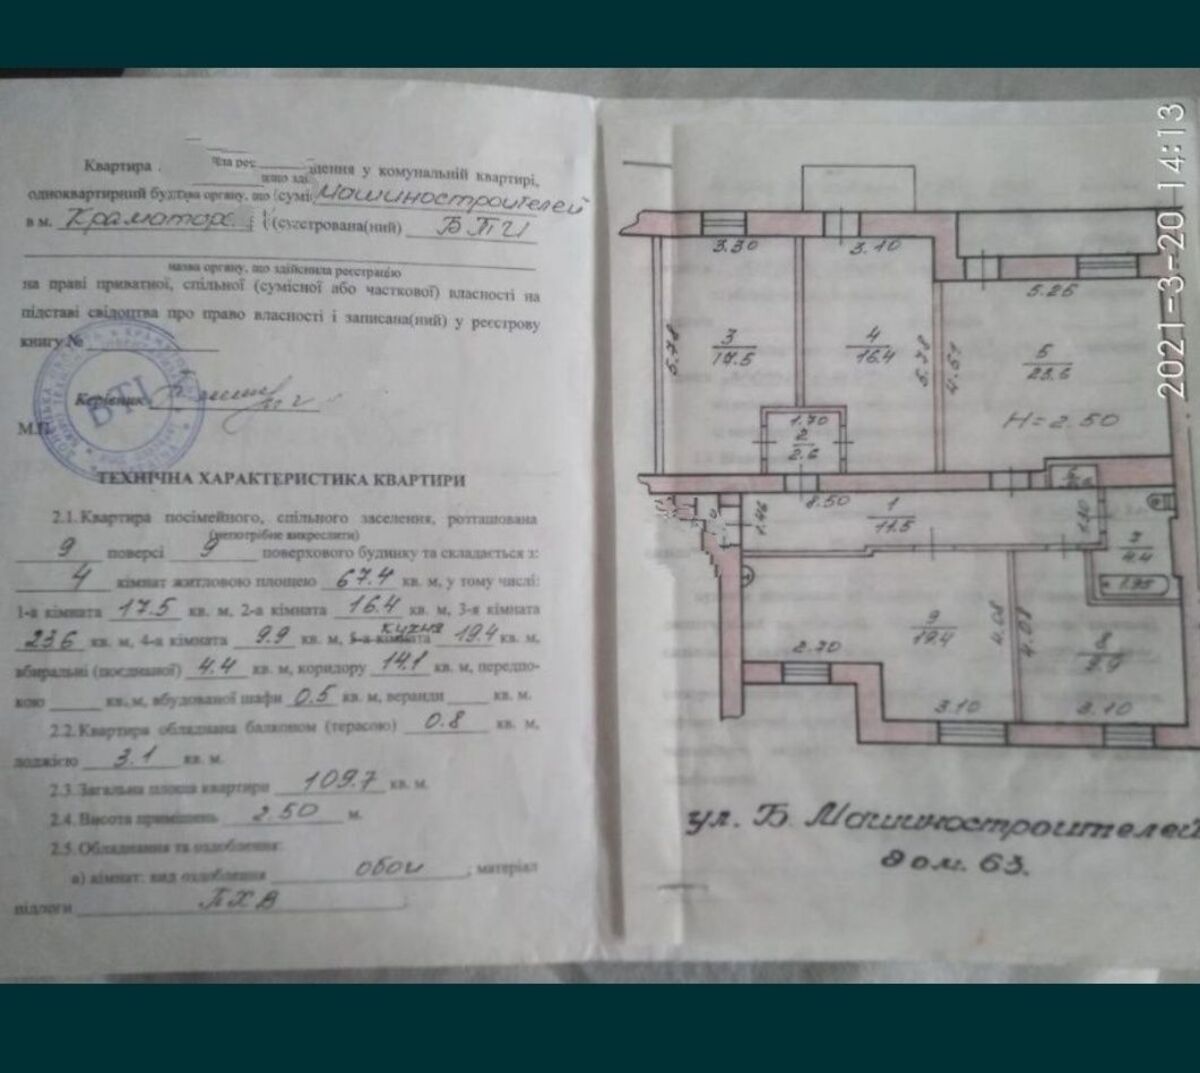 Квартира
ня у комунальній квартирі,
одноквартирний органу, що (сумі Машиностроителей
в м. Краматорс (сустрована(ний) БТИ
назва органу, що здійснила реєстрацію
на праві приватної, спільної (сумісної або часткової) власності на
підставі свідоцтва про право власності і записана(ний) у реєстрову
книгу №
БТІ
Керівник
М.П.
ТЕХНІЧНА ХАРАКТЕРИСТИКА КВАРТИРИ
2.1. Квартира посімейного, спільного заселення, розташована
(непотрібне викреслити)
9 поверсі 9 поверхового будинку та складається з:
4 кімнат житловою площею 67.4 кв. м, у тому числі:
1-а кімната 17.5 кв. м, 2-а кімната 16.4 кв. м, 3-я кімната
23.6 кв. м, 4-а кімната 9.9 кв. м, 5-а кімната кухня 19.4 кв. м,
вбиральні (поєднаної) 4.4 кв. м, коридору 14.1 кв. м, передпо-
кою кв. м, вбудованої шафи 0.5 кв. м, веранди кв. м.
2.2. Квартира обладнана балконом (терасою) 0.8 кв. м,
лоджією 3.1 кв. м.
2.3. Загальна площа квартири 109.7 кв. м.
2.4. Висота приміщень 2.50 м.
2.5. Обладнання та оздоблення:
а) кімнат: вид оздоблення обои, матеріал
підлоги ПХВ
3.30
3.10
5.26
5.78
3
17.5
4
16.4
5.78
4.51
5
23.6
H=2.50
1.70
2
2.6
8.50
1.46
1
11.5
6
1.20
7
4.4
9
19.4
4.08
4.08
8
9.9
2.70
3.10
3.10
ул. Б. Машиностроителей
дом. 63.
2021-3-20 14:13